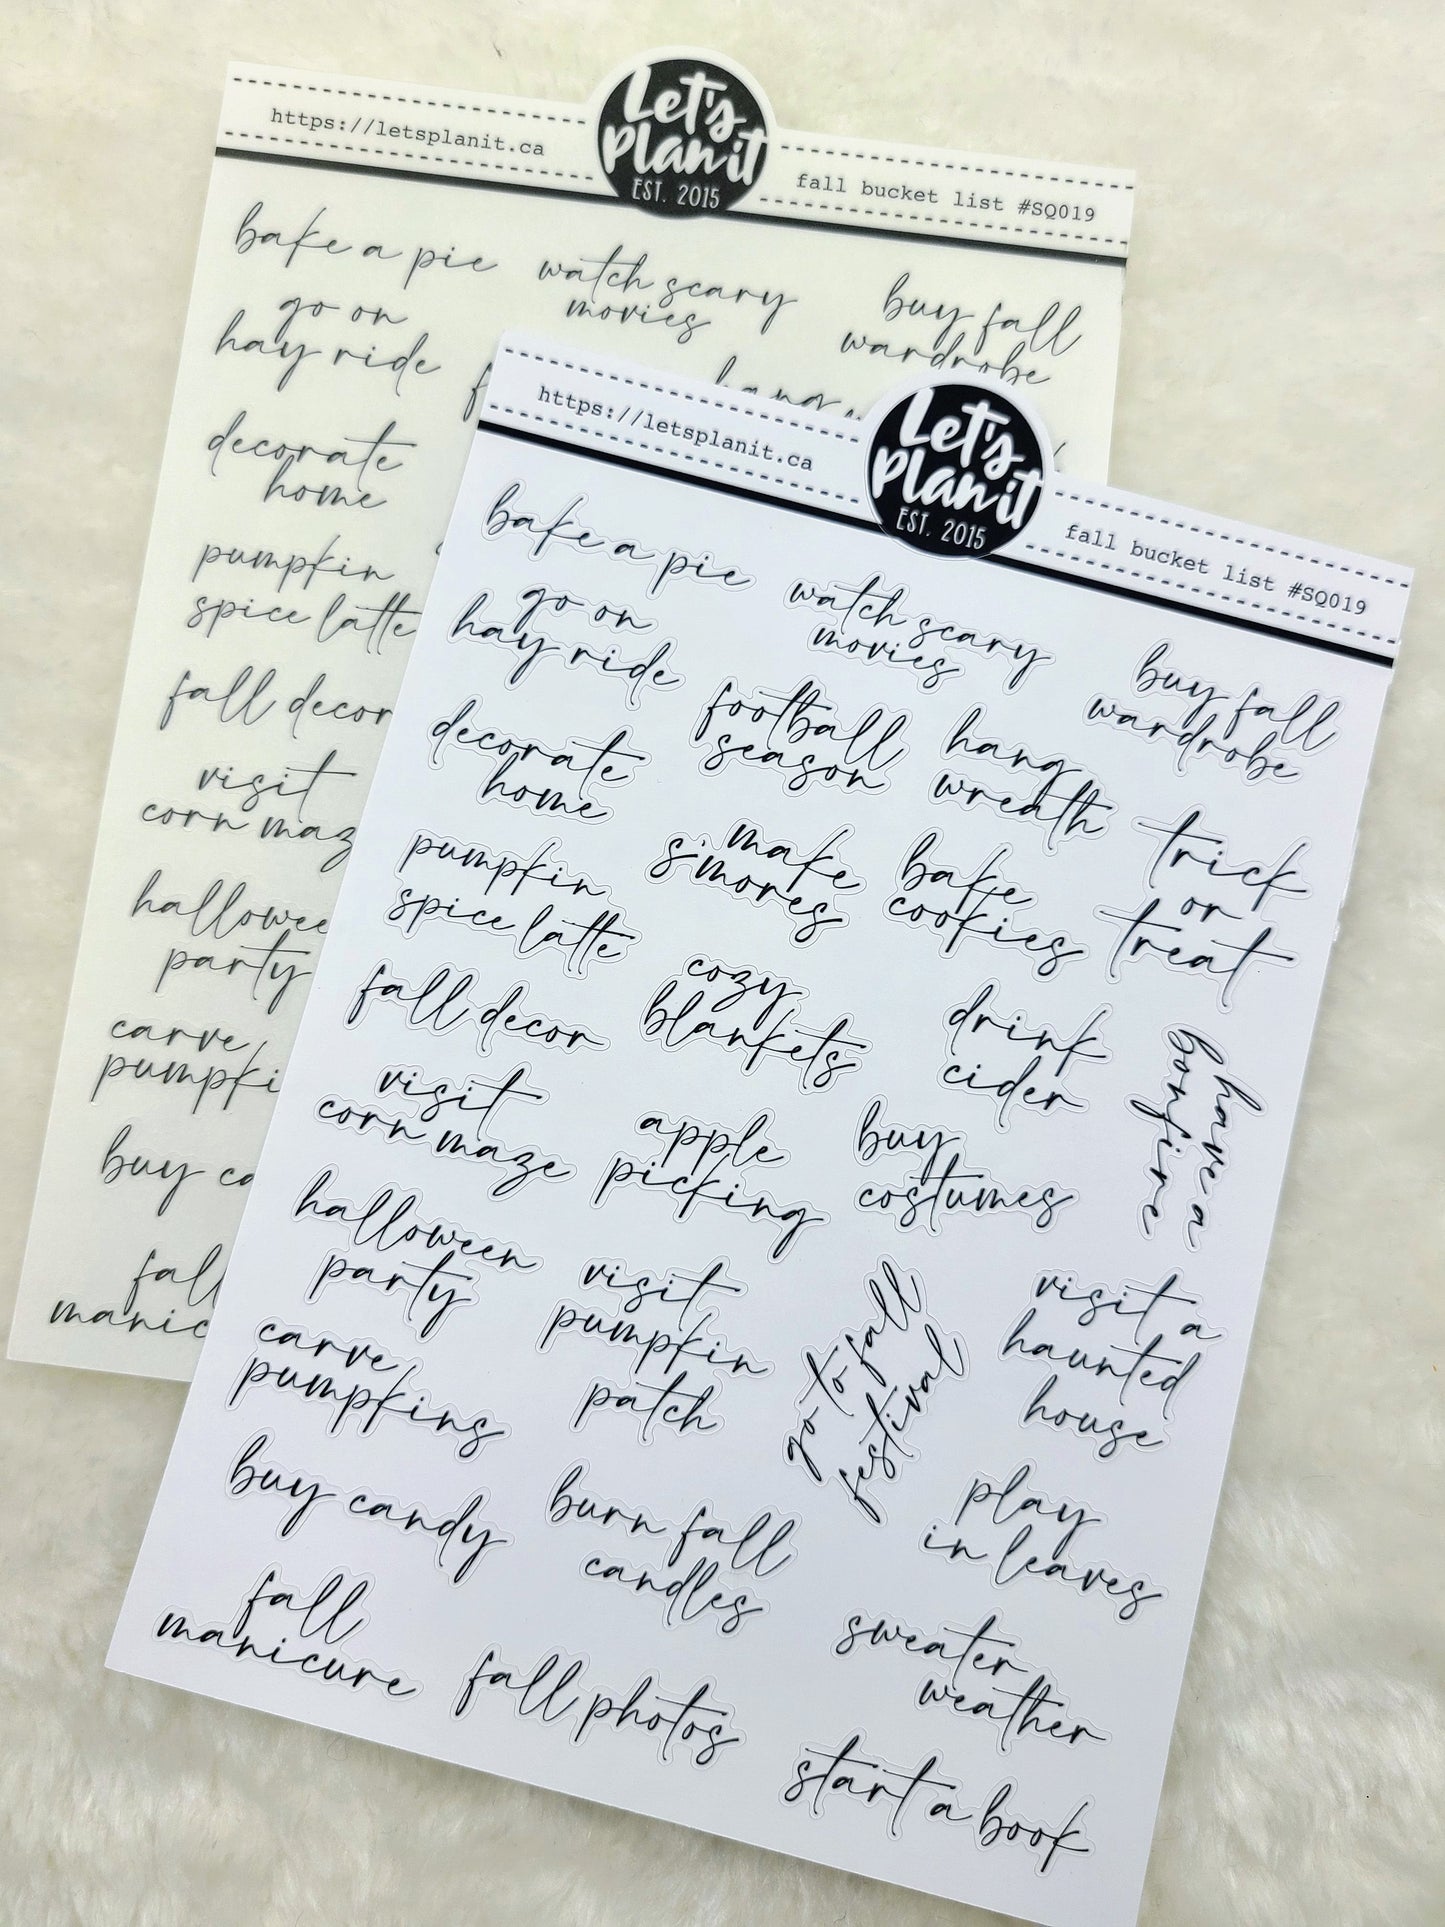 https://letsplanit.ca
Let's
Planit
EST. 2015
fall bucket list #SQ019
bake a pie
watch scary
movies
buy fall
wardrobe
go on
hay ride
hang
decorate
home
pumpkin
spice latte
fall decor
visit
corn maz
hallowee
party
carve
pumpki
buy ca
fal
manic
https://letsplanit.ca
Let's
Planit
EST. 2015
fall bucket list #SQ019
bake a pie
watch scary
movies
buy fall
wardrobe
go on
hay ride
football
season
hang
wreath
trick
or
treat
decorate
home
make
s'mores
bake
cookies
pumpkin
spice latte
cozy
blankets
drink
cider
have a
bonfire
fall decor
visit
corn maze
apple
picking
buy
costumes
halloween
party
visit
pumpkin
patch
go to fall
festival
visit a
haunted
house
carve
pumpkins
buy candy
burn fall
candles
play
in leaves
fall
manicure
fall photos
sweater
weather
start a book